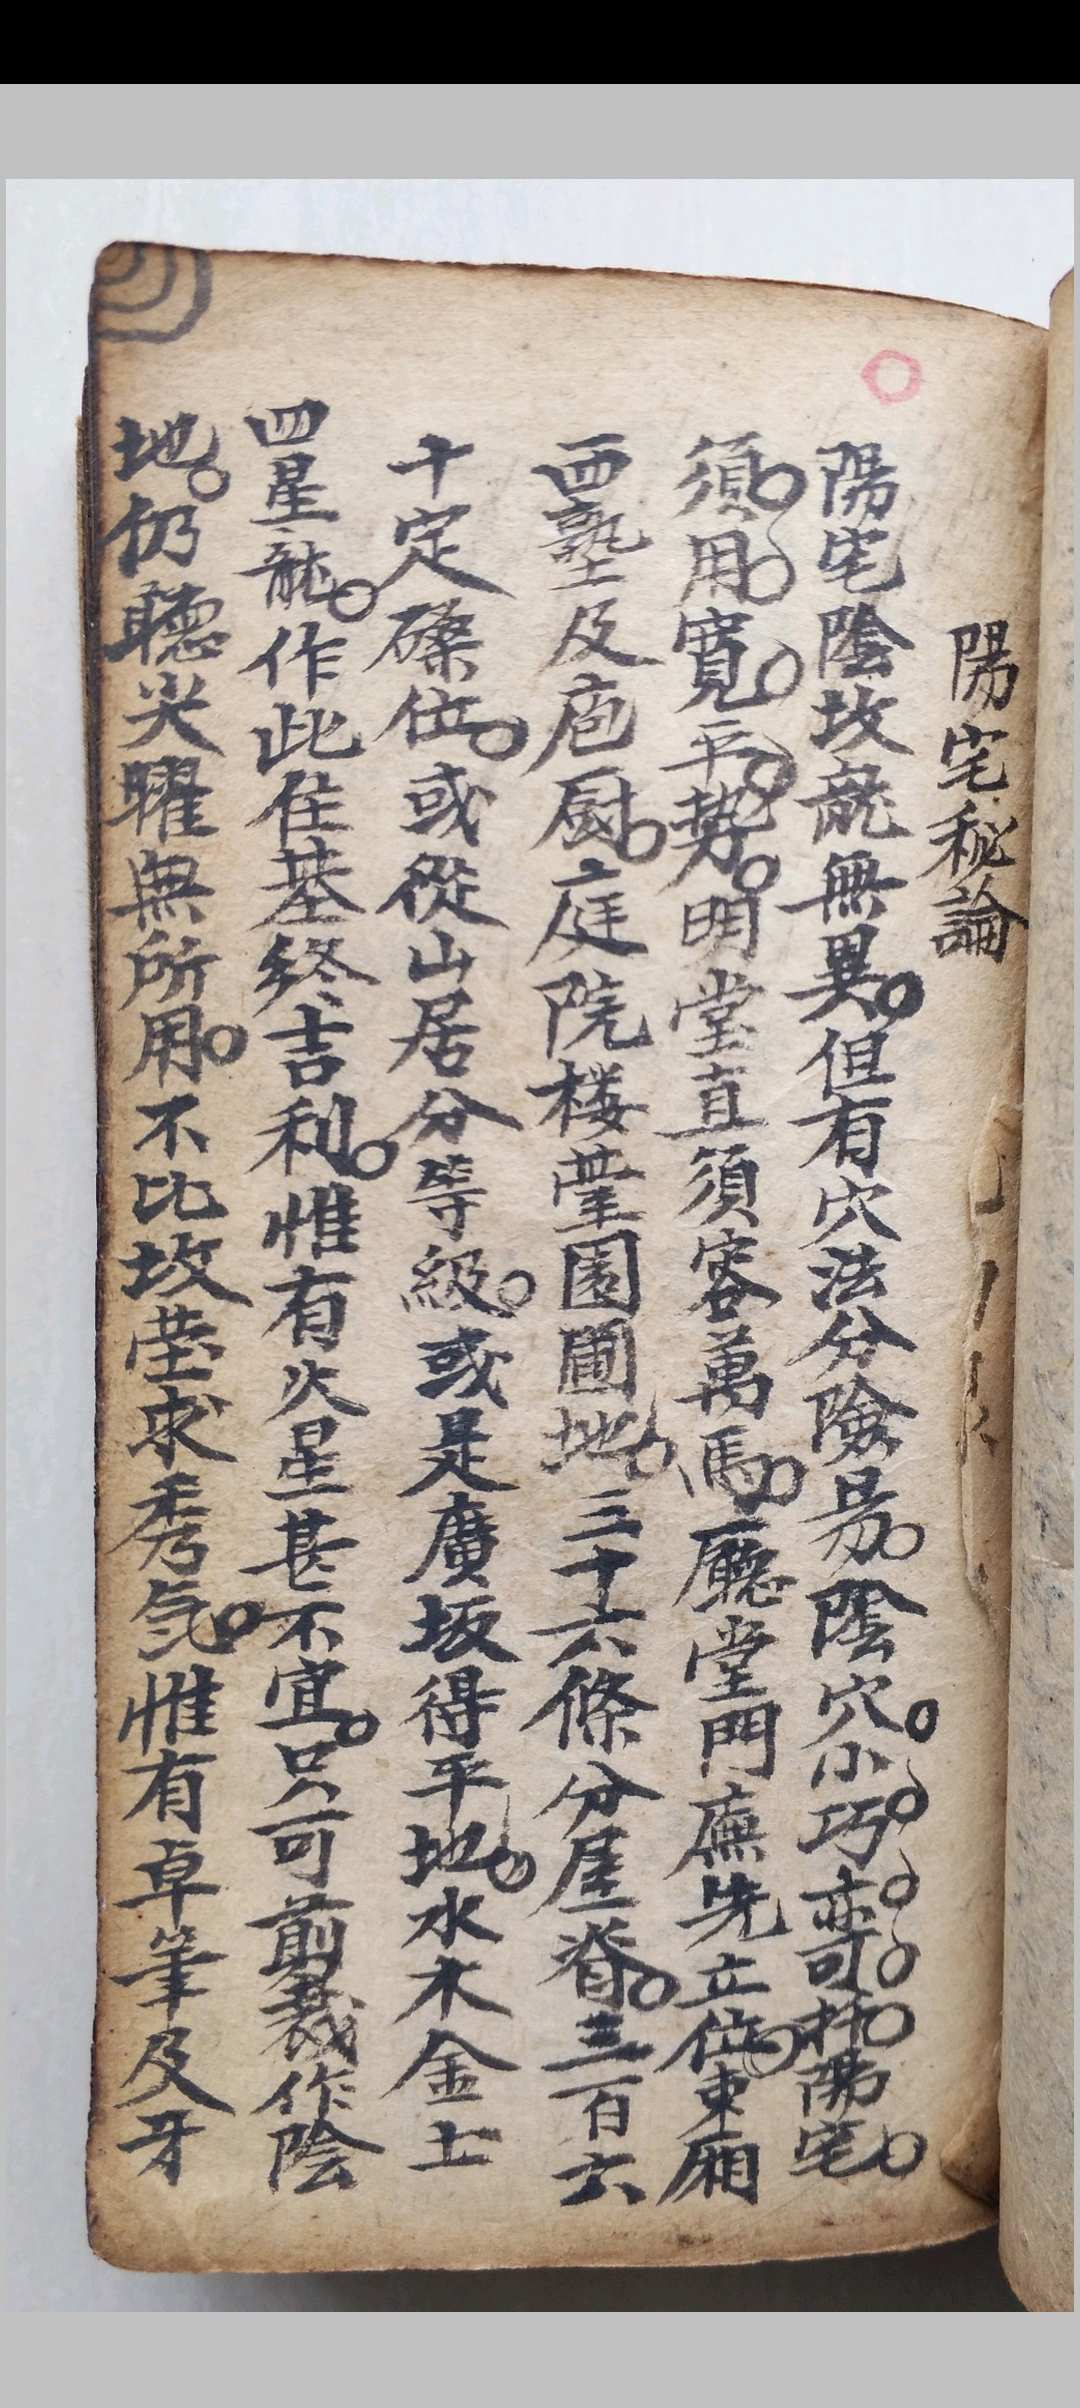 陽宅秘論
陽宅陰坟龍無異但有穴法分險易陰穴小巧亦可托陽宅
須用寬平勢明堂直須容萬馬廳堂門廡先立位東廂
西塾及庖厨庭院楼臺園圃地三十六條分屋脊三百六
十定磉位或從山居分等級或是廣坂得平地水木金土
四星龍作此住基終吉利惟有火星甚不宜只可剪裁作陰
地仍聽尖曜無所用不比坟塋求秀氣惟有卓筆及牙